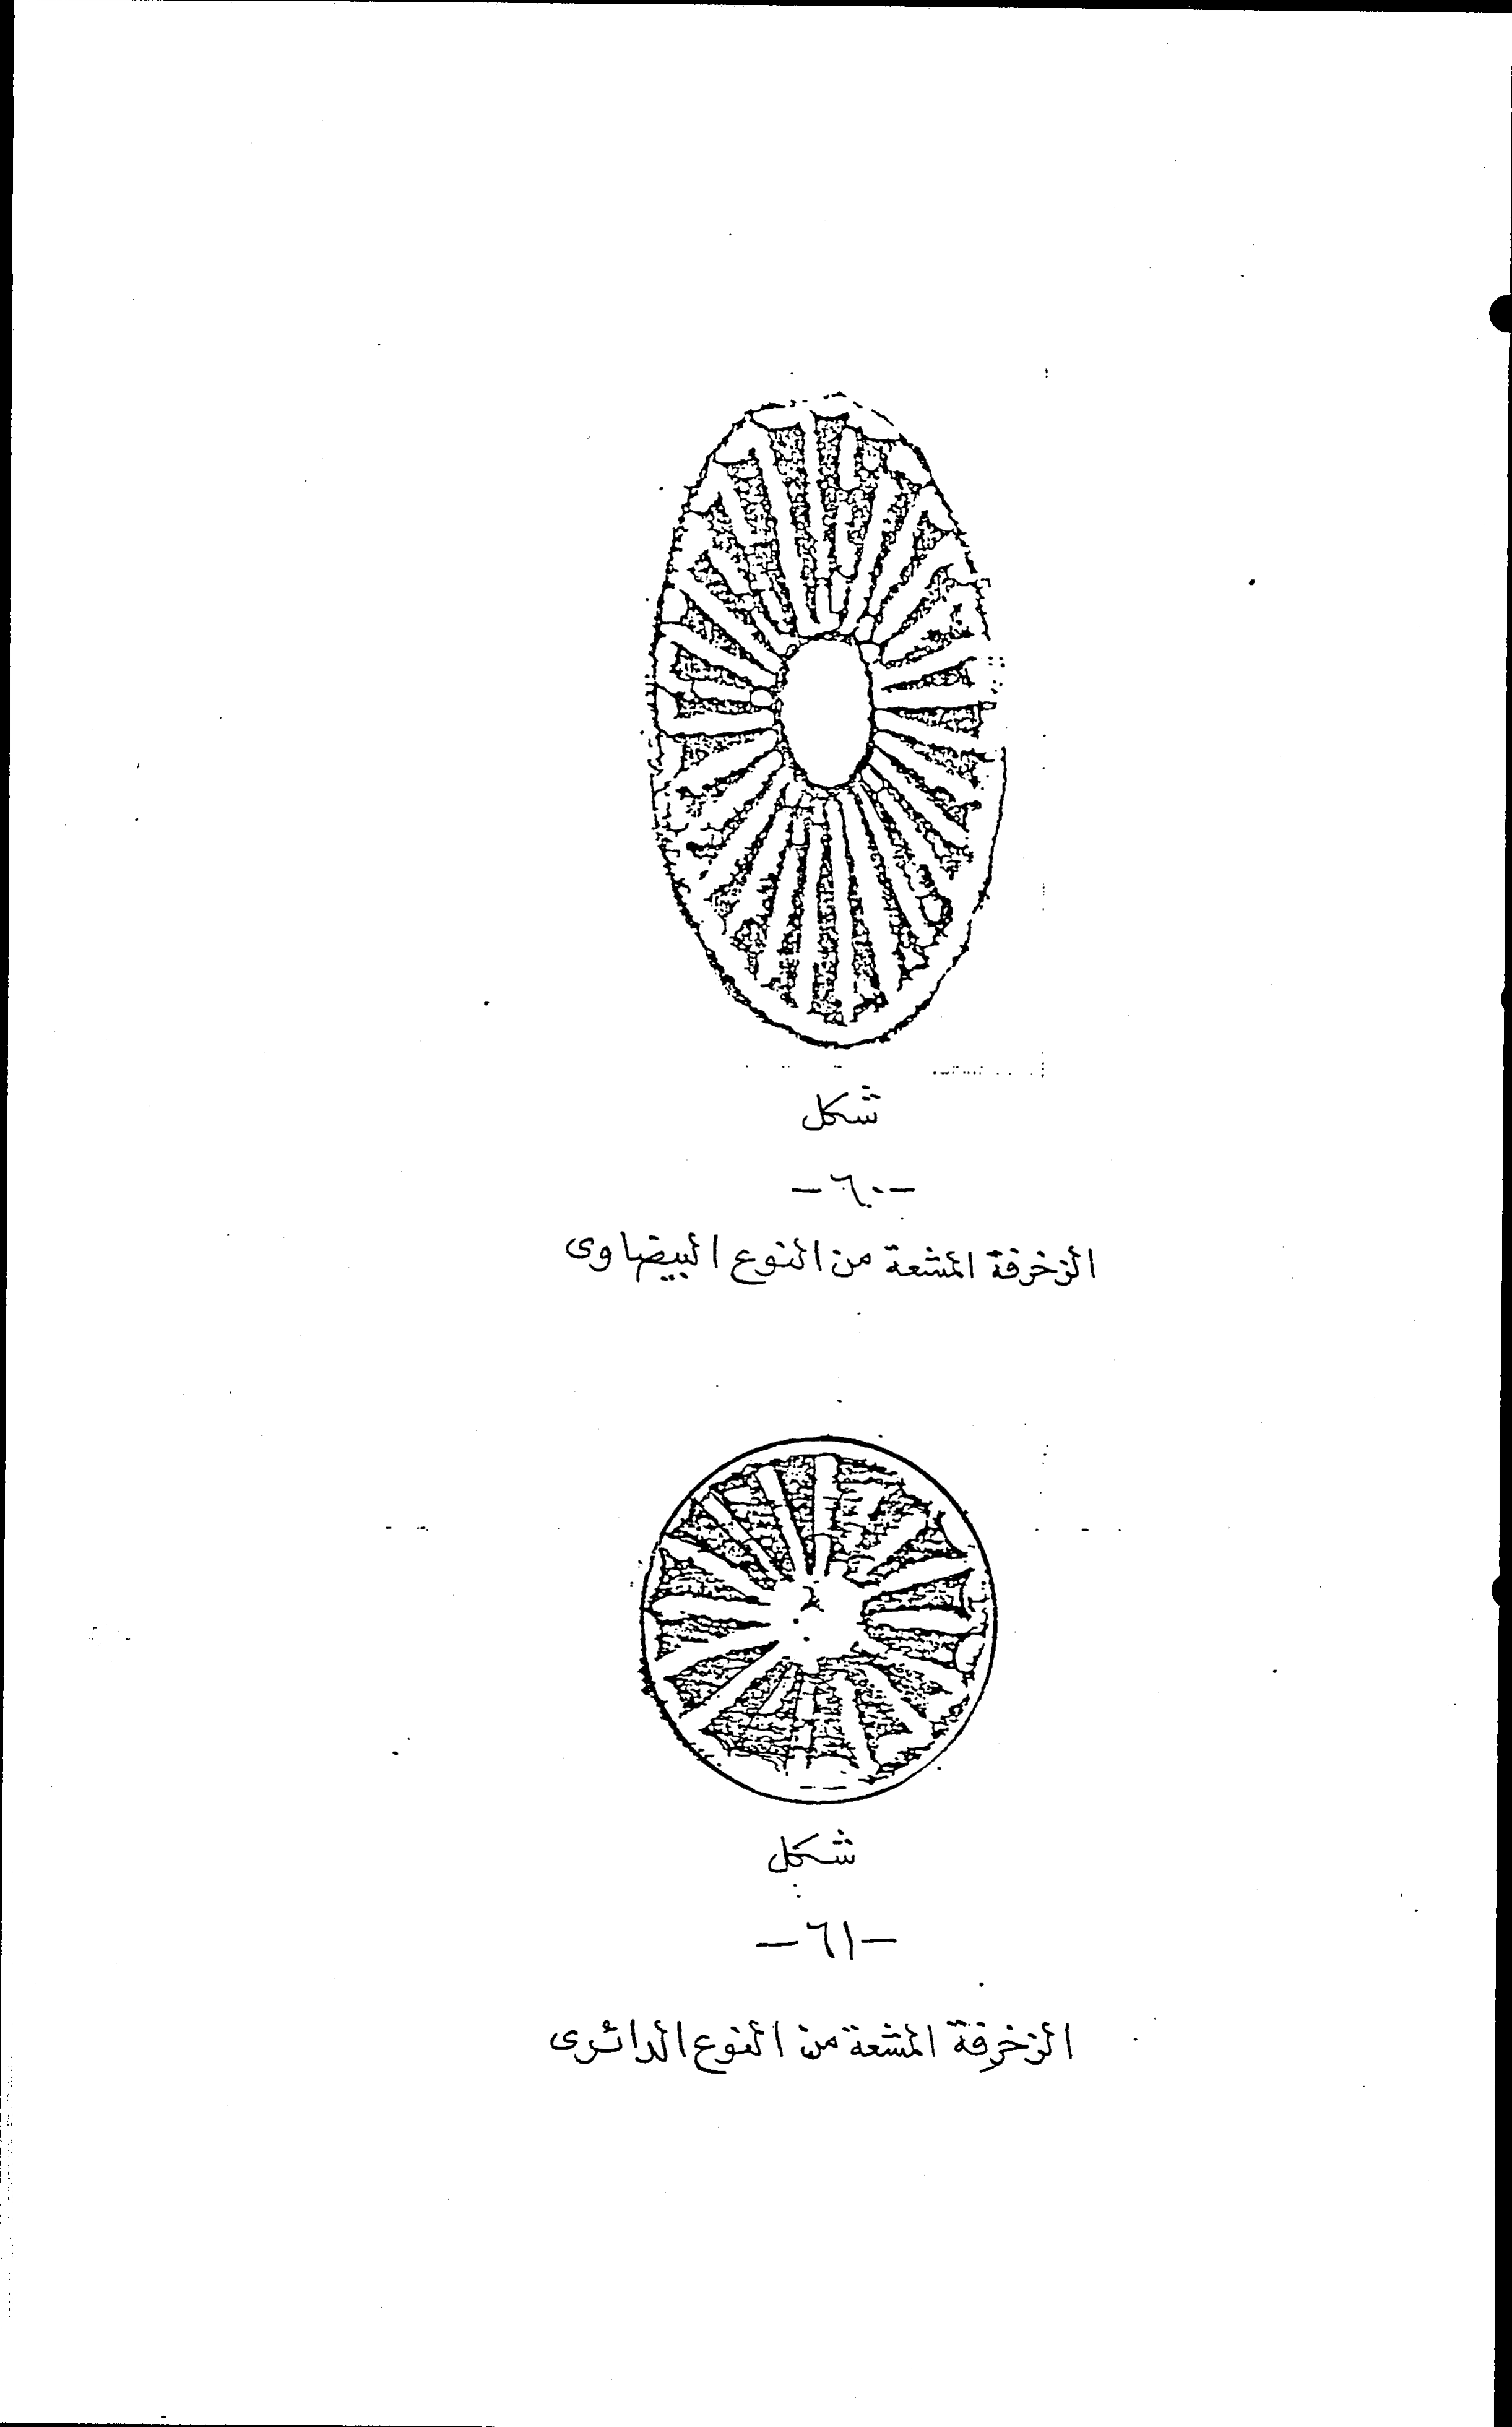 شكل
-٦٠-
الزخرفة المشعة من النوع البيضاوى
شكل
-٦١-
الزخرفة المشعة من النوع الدائرى